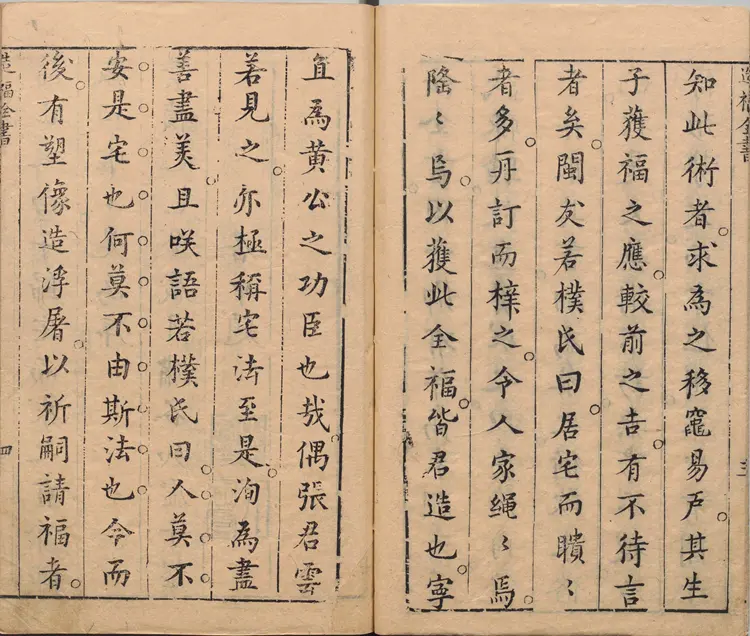 知此術者。求為之移竈易戶。其生
子獲福之應。較前之吉。有不待言
者矣。閩友若樸氏曰。居宅而聵〻
者多。再訂而梓之。令人家繩〻焉。
隆〻焉。以獲此全福。皆君造也。寧
且為黃公之功臣也哉。偶張君雲
若見之。亦極稱宅法至是。洵為盡
善盡美。且咲語若樸氏曰。人莫不
安是宅也。何莫不由斯法也。今而
後。有塑像造浮屠。以祈嗣請福者。
造福全書
三
造福全書
四